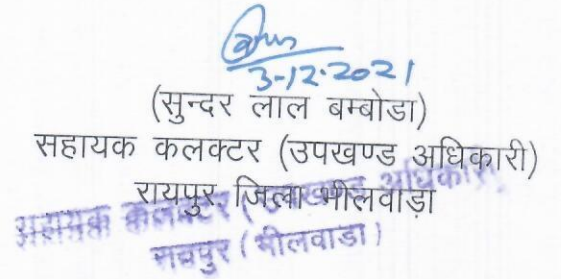 3-12-2021
(सुन्दर लाल बम्बोडा)
सहायक कलक्टर (उपखण्ड अधिकारी)
रायपुर, जिला भीलवाड़ा
सहायक कलक्टर (उपखण्ड अधिकारी)
रायपुर (भीलवाडा)